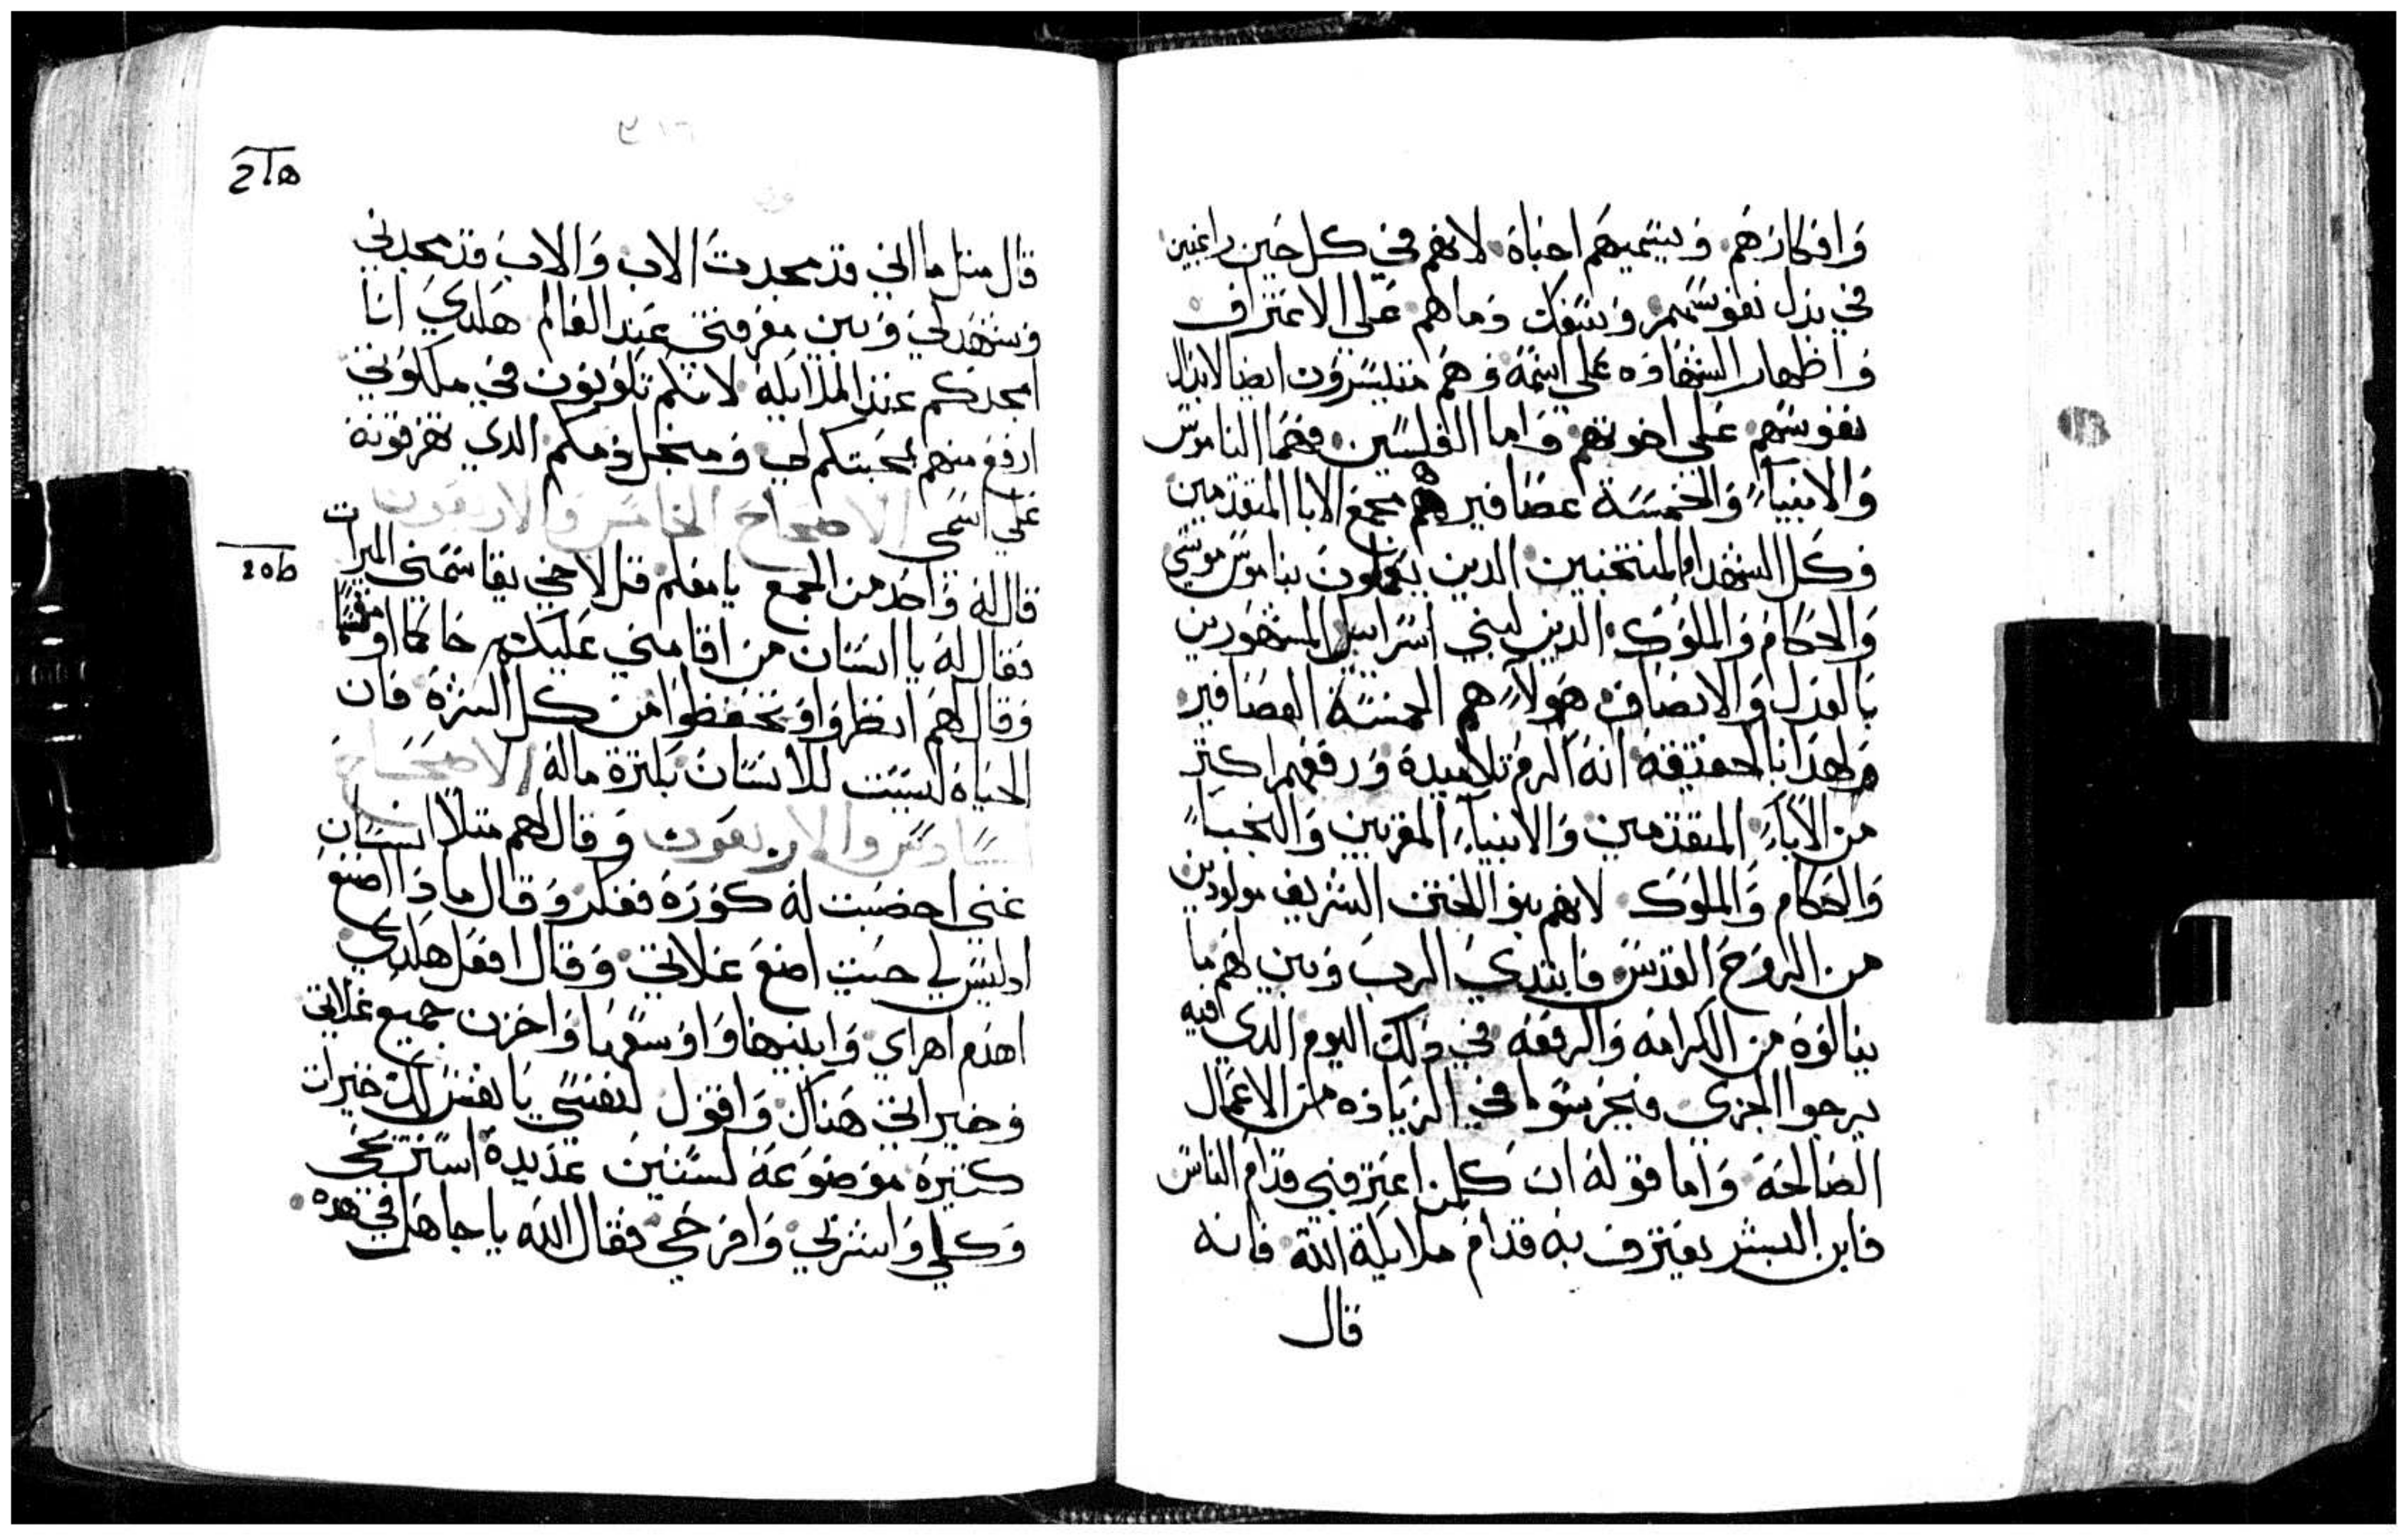 وافكارهم وبيتميهم احباة لانهم في كل حين راغبين
في بدل نفوسهم وسفك دماهم على الاعتراف
واظهار الشهاده على اسمه وهم متيسرون ايضا لابدال
نفوسهم على اخوتهم واما الفلسين فهما الناموس
والانبيآء والخمسة عصافير هم مجمع الابا المتقدمين
وكل الشهدا والمنتخبين الدين يعملون بناموس موسي
والحكام والملوك الدين لبني اسراييل المشهورين
بالعدل والانصاف هولآء هم الخمسة العصافير
ولهذا بالحقيقة انه اكرم تلاميده ورفعهم اكتر
من الابآء المتقدمين والانبيآء المقربين والنجبآء
والحكام والملوك لانهم بنوا الختن الشريف مولودين
من الروح القدس فابتدي الرب وبين لهم ما
ينالوه من الكرامه والرفعه في دلك اليوم الدي فيه
يرجوا الجزي فيحرسوا في الزياده من الاعمال
الصالحة واما قوله ان كلمن اعترف بي قدام الناس
فابن البشر يعترف به قدام ملايكة الله فانه
قال
قال متل ما اني قد مجدت الاب والاب قد مجدني
وشهد لي وبين معرفتي عند العالم هكدي انا
امجدكم عند الملايكه لانكم تكونون في ملكوتي
ارفع منهم لمحبتكم لي ومنجل دمكم الدي تهرقونه
على اسمي الاصحاح الخامس والاربعون
قال له واحد من الجمع يا معلم قل لاخي يقاسمني الميرات
فقال له يا انسان من اقامني عليكم حاكما او مقسما
وقال لهم انظروا وتحفظوا من كل الشره فان
الحياة ليست للانسان بكترة ماله الاصحاح
السادس والاربعون وقال لهم متلا انسان
غني اخصبت له كورة ففكر وقال مادا اصنع
ادليس لي حيت اضع غلاتي وقال افعل هكدي
اهدم اهراي وابنيها واوسعها واخزن جميع غلاتي
وخيراتي هناك واقول لنفسي يا نفس لك خيرات
كتيرة موضوعة لسنين عديدة استريحي
وكلي واشربي وافرحي فقال الله يا جاهل في هده